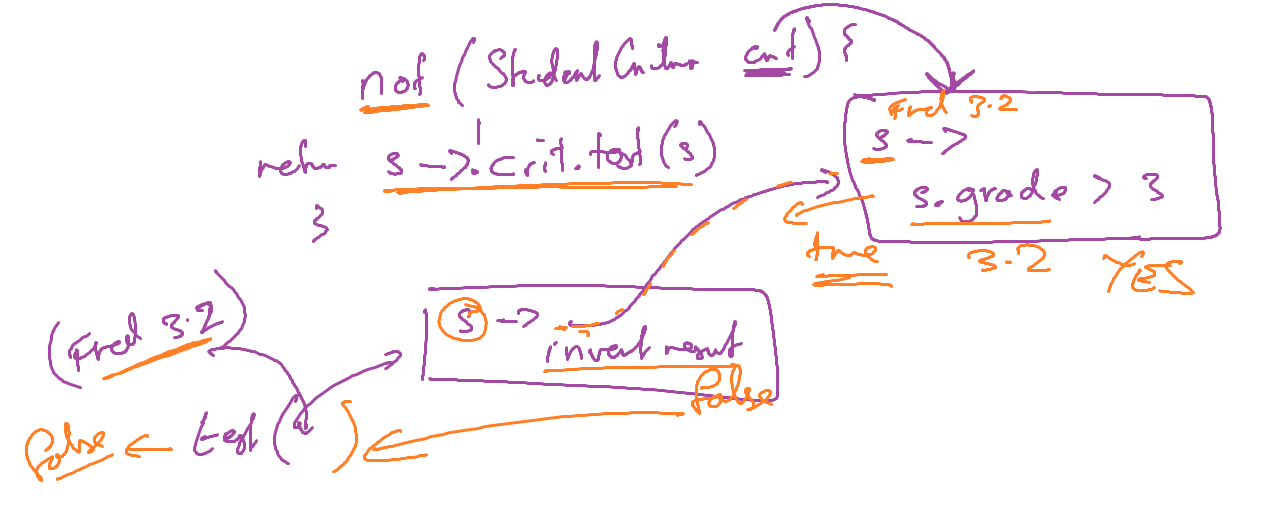 not (Student Criterion crit) {
return s -> !crit.test(s)
}
Fred 3.2
s ->
s.grade > 3
true
3.2 YES
s ->
invert result
false
(Fred 3.2)
false <- test ( )